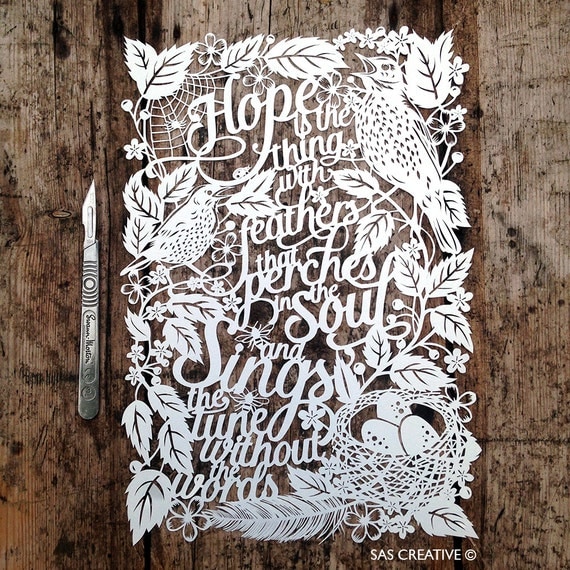 Hope
is the
thing
with
feathers
that
perches
in the
Soul
and
Sings
the
tune
without
the
words
Swann-Morton
SAS CREATIVE ©